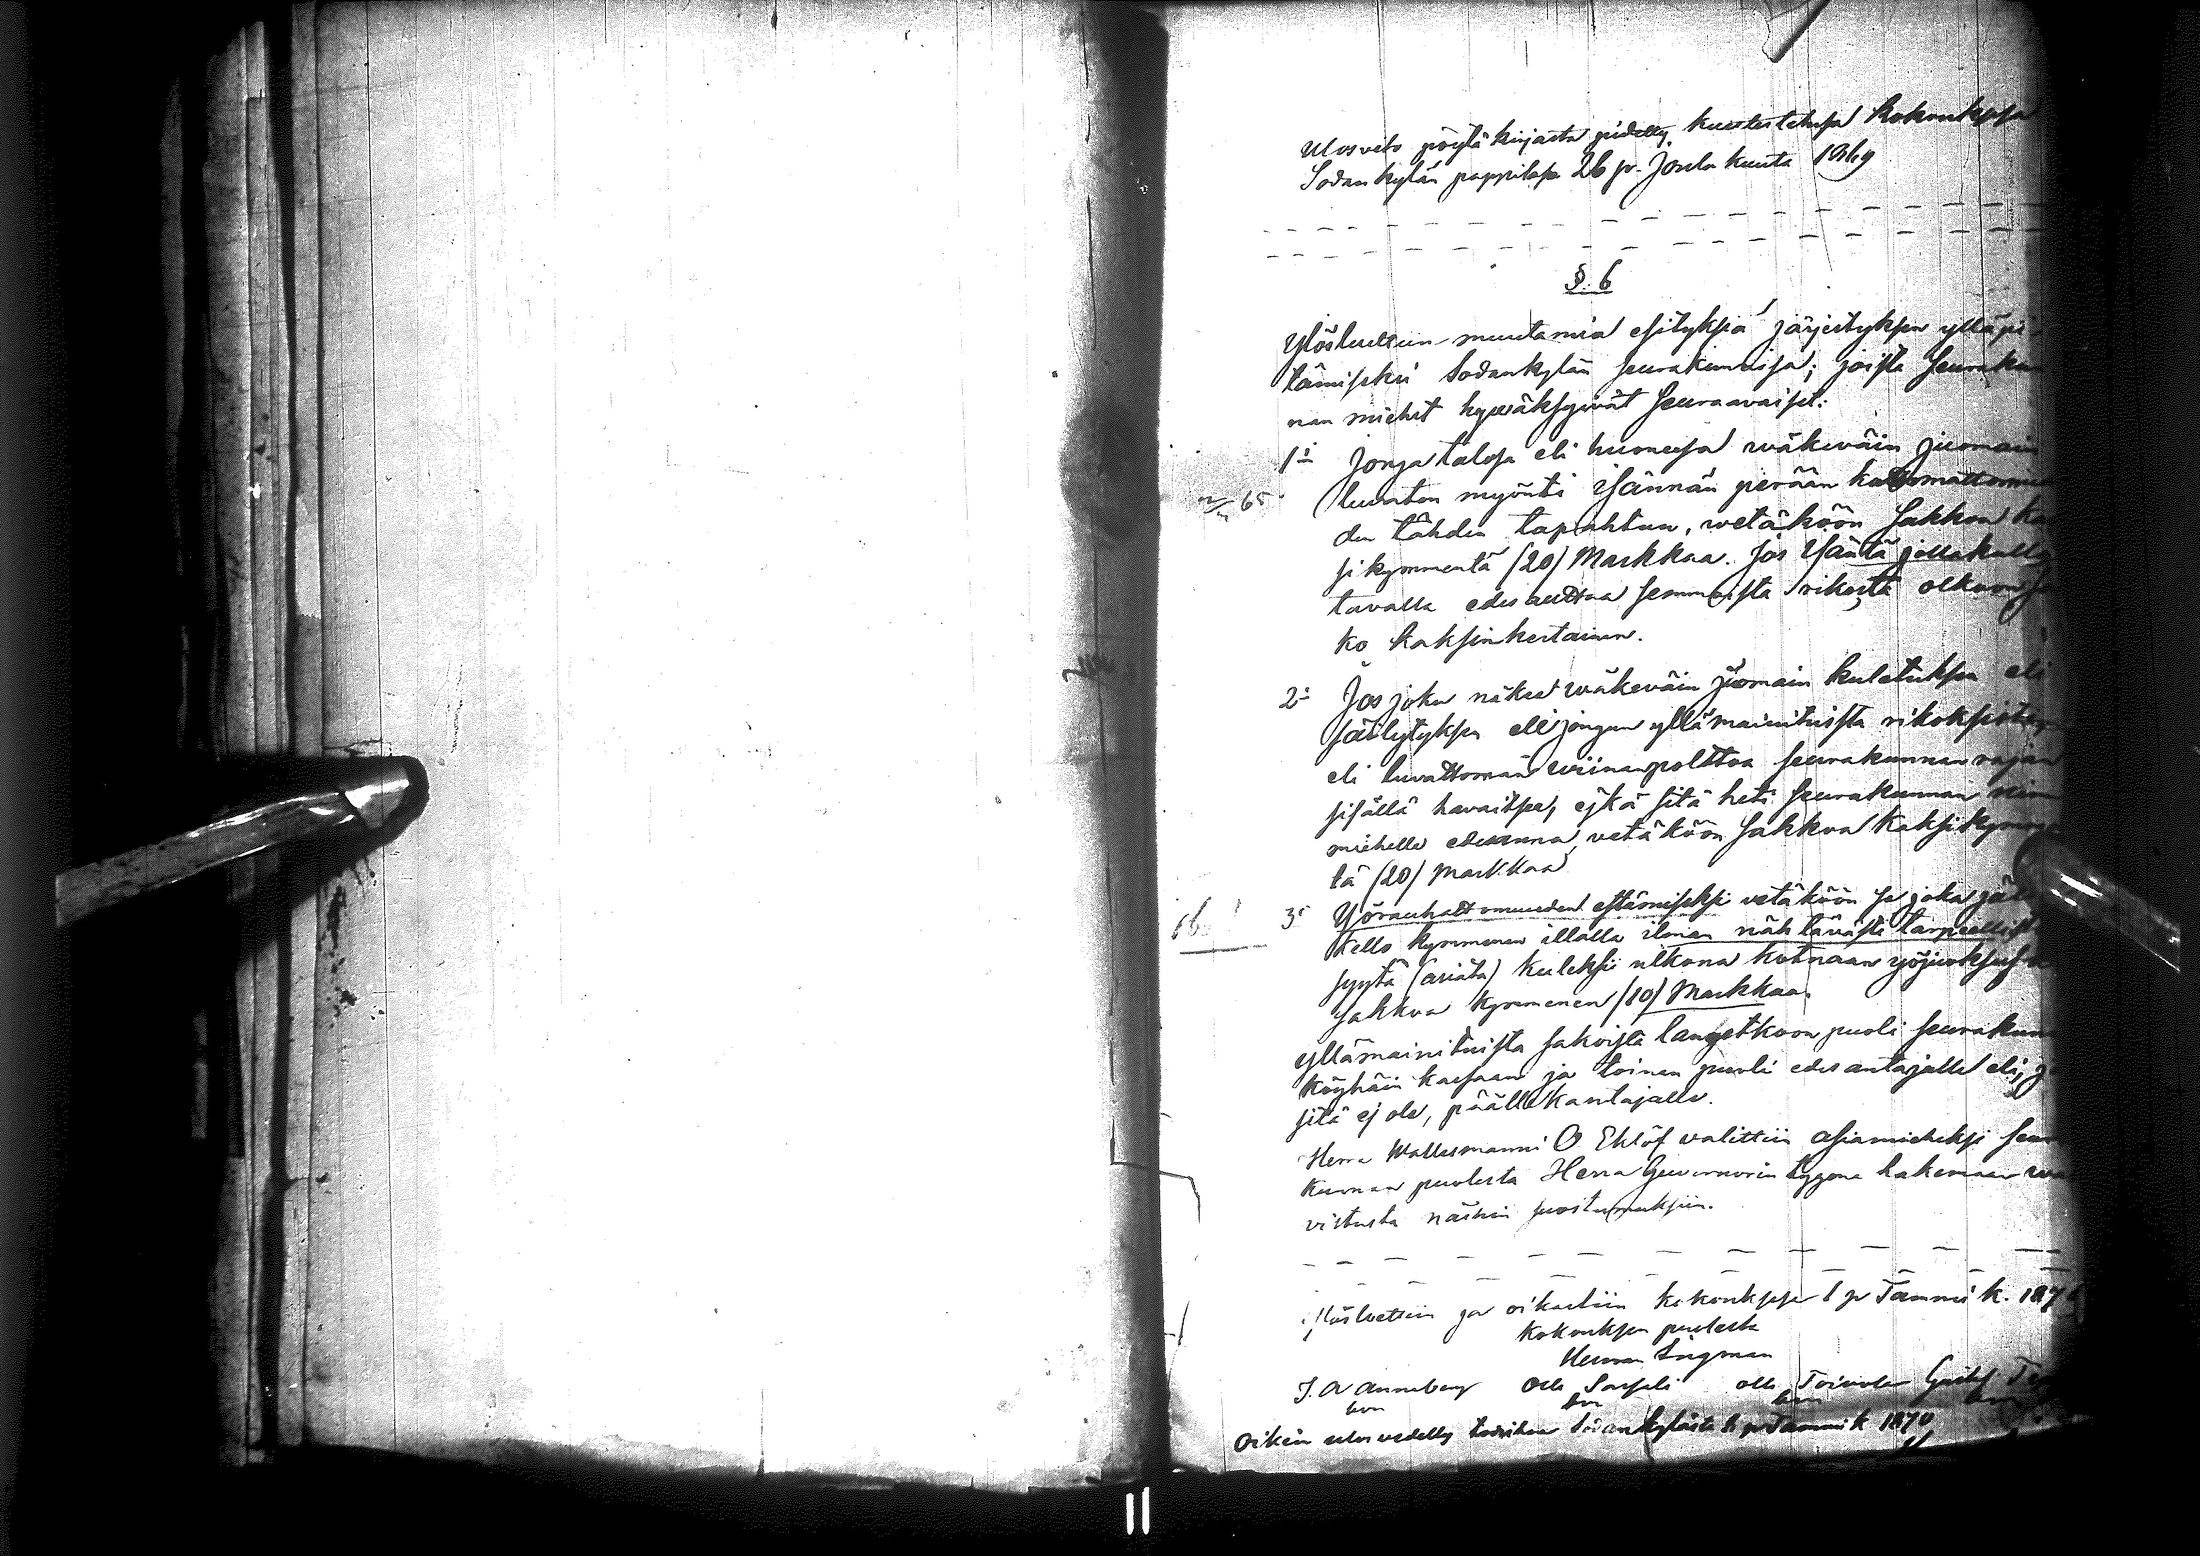 Ulosveto pöytäkirjasta pidetty kuntistelusa kokouksesa
Sodankylän pappilasa 26 p. Joulukuuta 1869
§. 6
Ylösluettiin muutamia esityksiä järjestyksen ylläpi-
tämiseksi Sodankylän seurakunnisa; joista seurakun
nan miehet hyväksyivät seuraavaiset:
1:s Jonga talosa eli huonesa wäkeväin juomain
65 luvaton myönti isännän perään katsomattomuu
den tähden tapahtuu, vetäköön sakkoa ka
si kymmentä (20) Markkaa. Jos Isäntä jollakulla
tavalla edesauttaa semmoista rikosta olkoon sa
ko kaksinkertainen.
2:s Jos joku näkee wäkeväin juomain kuletuksen eli
säilytyksen eli jongun yllämainituista rikoksista
eli luvattoman viinanpolttoa seurakunnan rajan
sisällä havaitsee, ejkä sitä heti seurakunnan
miehelle edesanna, vetäköön sakkoa kaksikymmen
tä (20) Markkaa
3:s Yörauhattomuuden estämiseksi vetäköön se joka
kello kymmenen illalla ilman nähtävästi tarpeellista
syytä (asiata) kuleksii ulkona kotnaan yöjuoksusa
sakkoa kymmenen (10) Markkaa.
yllämainituista sakoista langetkoon puoli seurakun
köyhäin kassaan ja toinen puoli edesantajalle eli, j
sitä ej ole, päällekantajalle.
Herra Wallesmanni O Eklöf valittiin asiamieheksi seu
kunnan puolesta Herra Guvernörin tygöna hakemaan wa
vistusta näihin suostumuksiin.
Ylösluettiin ja oikaistiin kokouksesa 1 p Tammik. 187
Kokouksen puolesta
Herman Lugman
J. A Anneberg Olli Sarjeli Olli Toivola Gustf
Oikein ulosvedetty todistaa Sodankylästä p Tammik 1870